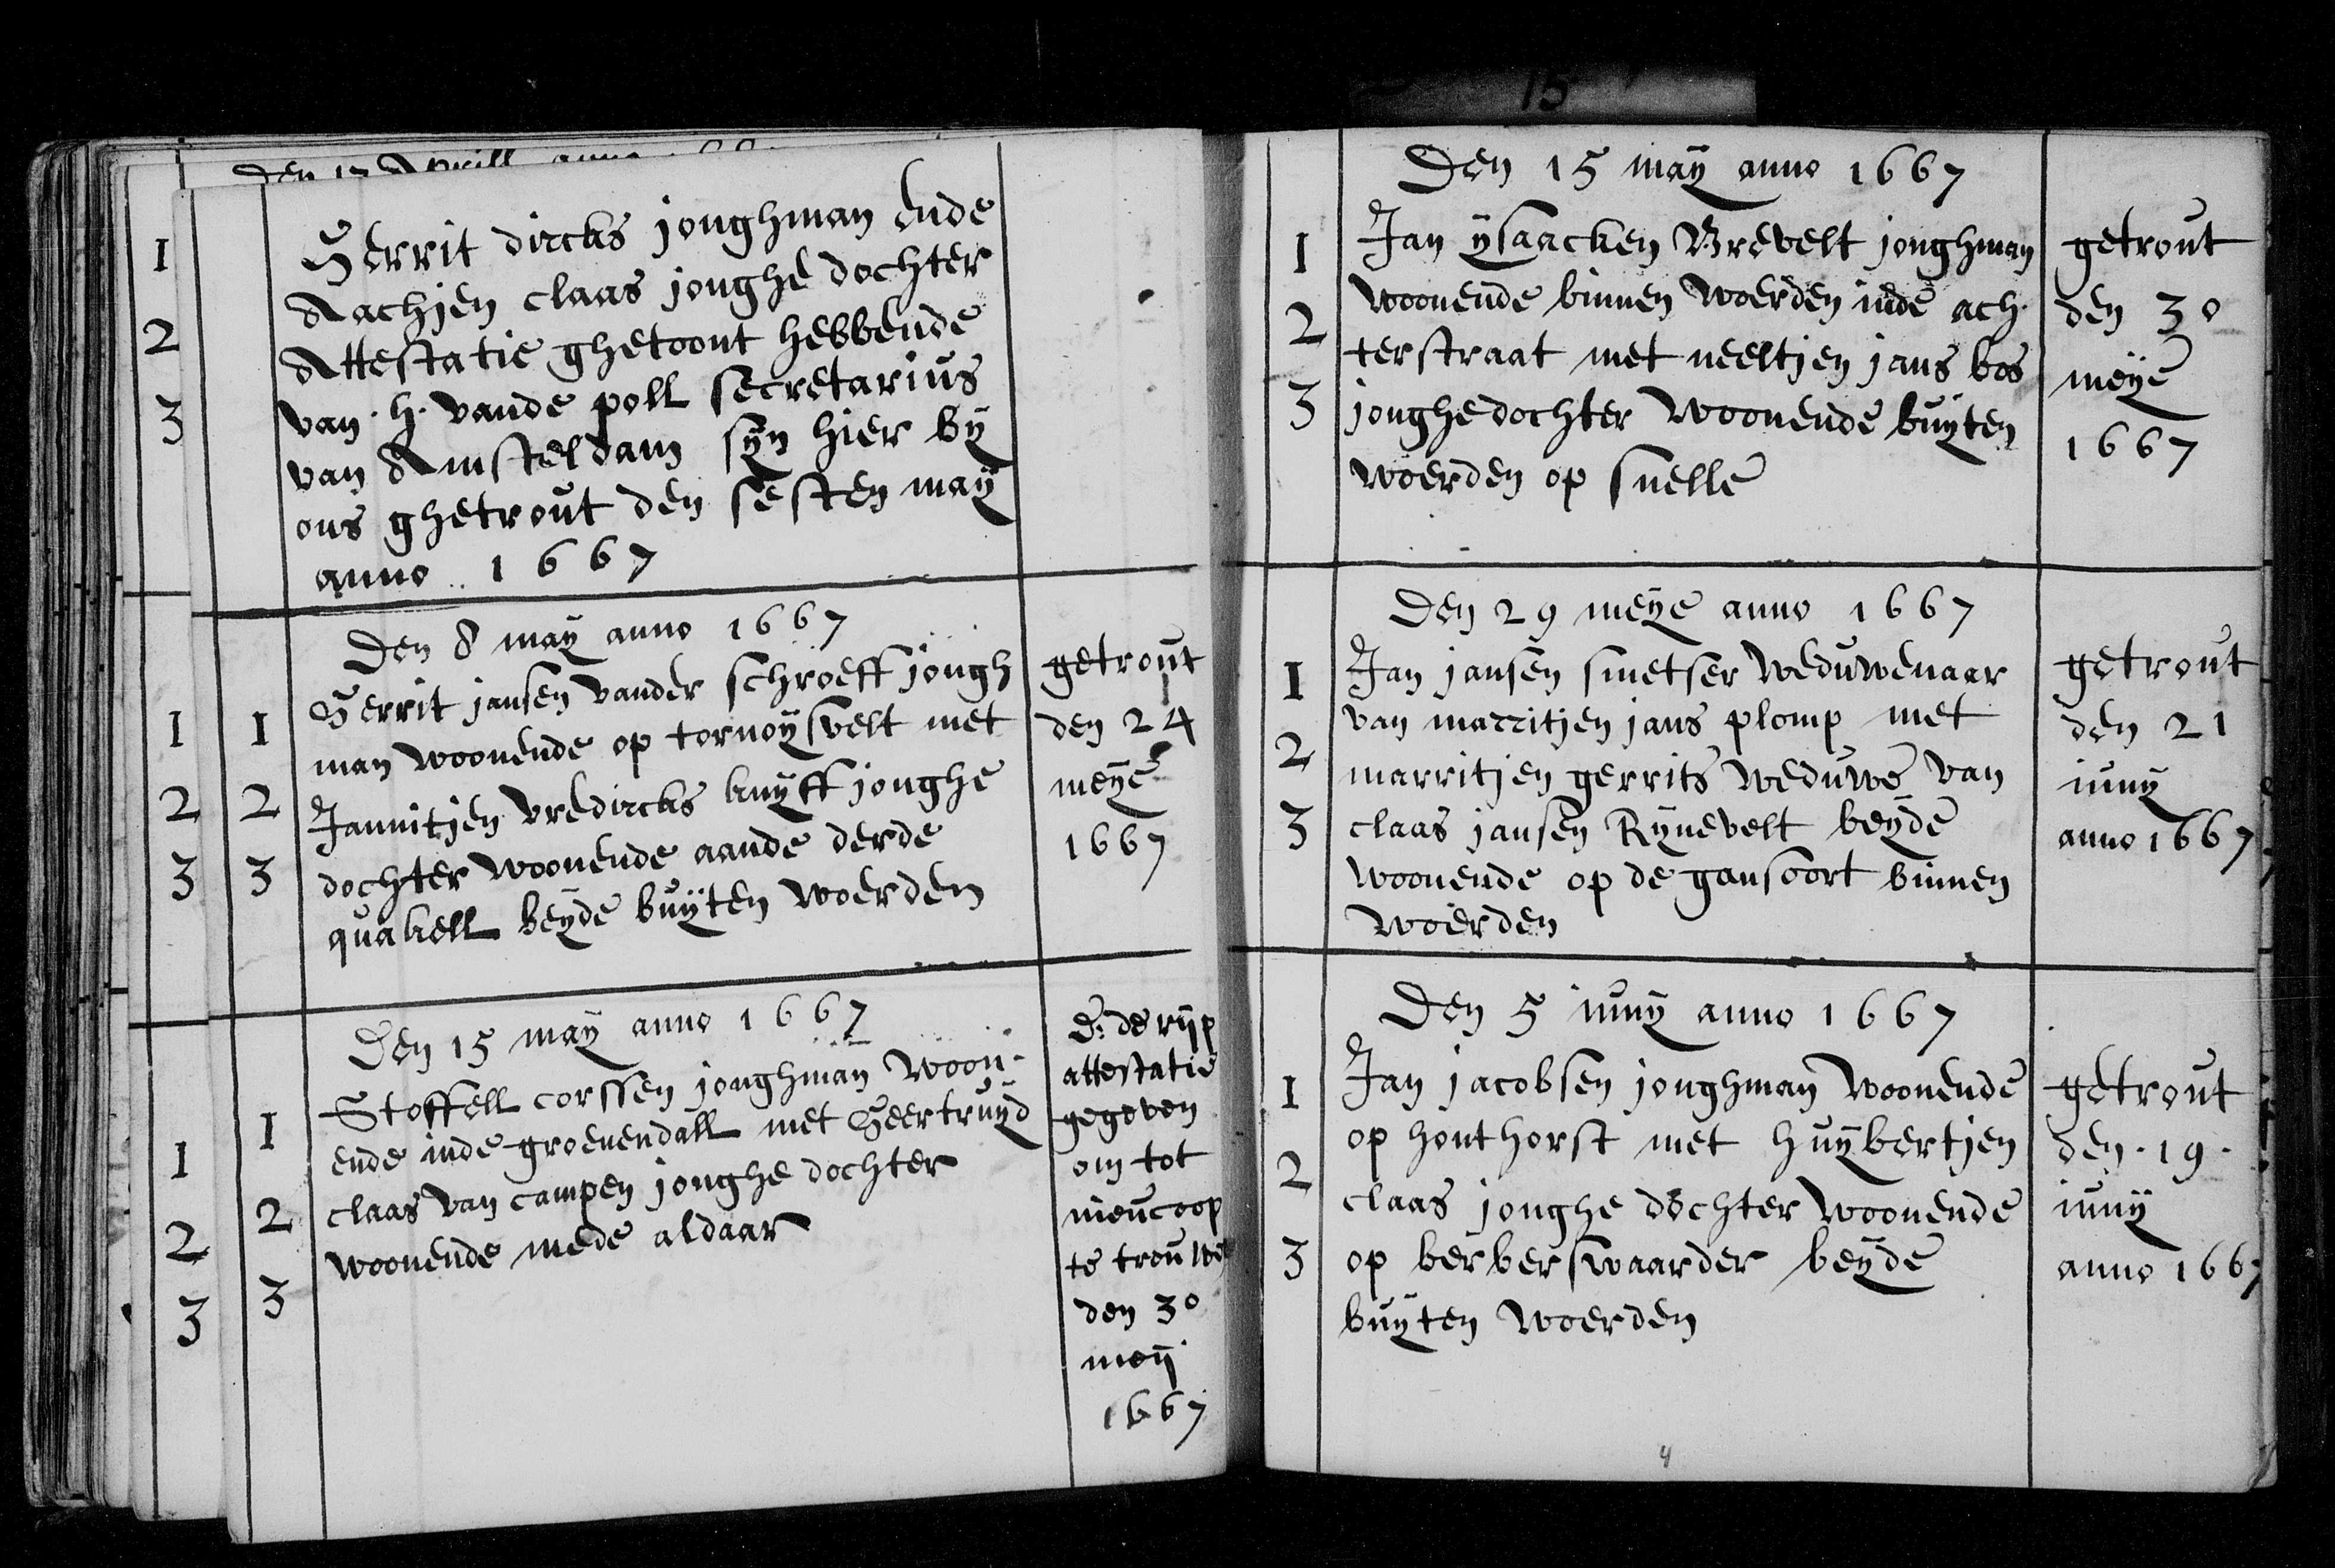 15
Den 17 Aprill anno
1
2
3
Gerrit dircks jonghman ende
Aachjen claas jonghe dochter
Attestatie ghetoont hebbende
van. h. vande poll secretarius
van Amsteldam sÿn hier bÿ
ons ghetrout den sesten maÿ
anno 1667
1
2
3
1
2
3
Den 8 maÿ anno 1667
Gerrit jansen vander schroeff jongh
man woonende op tornoÿsvelt met
Jannitjen vredircks knÿff jonghe
dochter woonende aande derde
quakell beÿde buÿten woerden
getrout
den 24
meÿe
1667
1
2
3
1
2
3
Den 15 maÿ anno 1667
Stoffell corssen jonghman woon-
ende inde groenendall met Geertruÿd
claas van campen jonghe dochter
woonende mede aldaar
D: de rijp
attestatie
gegeven
om tot
nieucoop
te trouwe
den 30
meij
1667
Den 15 maÿ anno 1667
1
2
3
Jan ÿsaacken Brevelt jonghman
woonende binnen woerden inde ach-
terstraat met neeltjen jans bos
jonghedochter woonende buÿten
woerden op snelle
getrout
den 30
meÿe
1667
Den 29 meÿe anno 1667
1
2
3
Jan jansen smetser weduwenaar
van marritjen jans plomp met
marritjen gerrits weduwe van
claas jansen Rÿnevelt beÿde
woonende op de gansoort binnen
woerden
getrout
den 21
iunÿ
anno 1667
Den 5 iunÿ anno 1667
1
2
3
Jan jacobsen jonghman woonende
op honthorst met huÿbertjen
claas jonghe dochter woonende
op berberswaarder beÿde
buÿten woerden
getrout
den. 19.
iunÿ
anno 1667
4